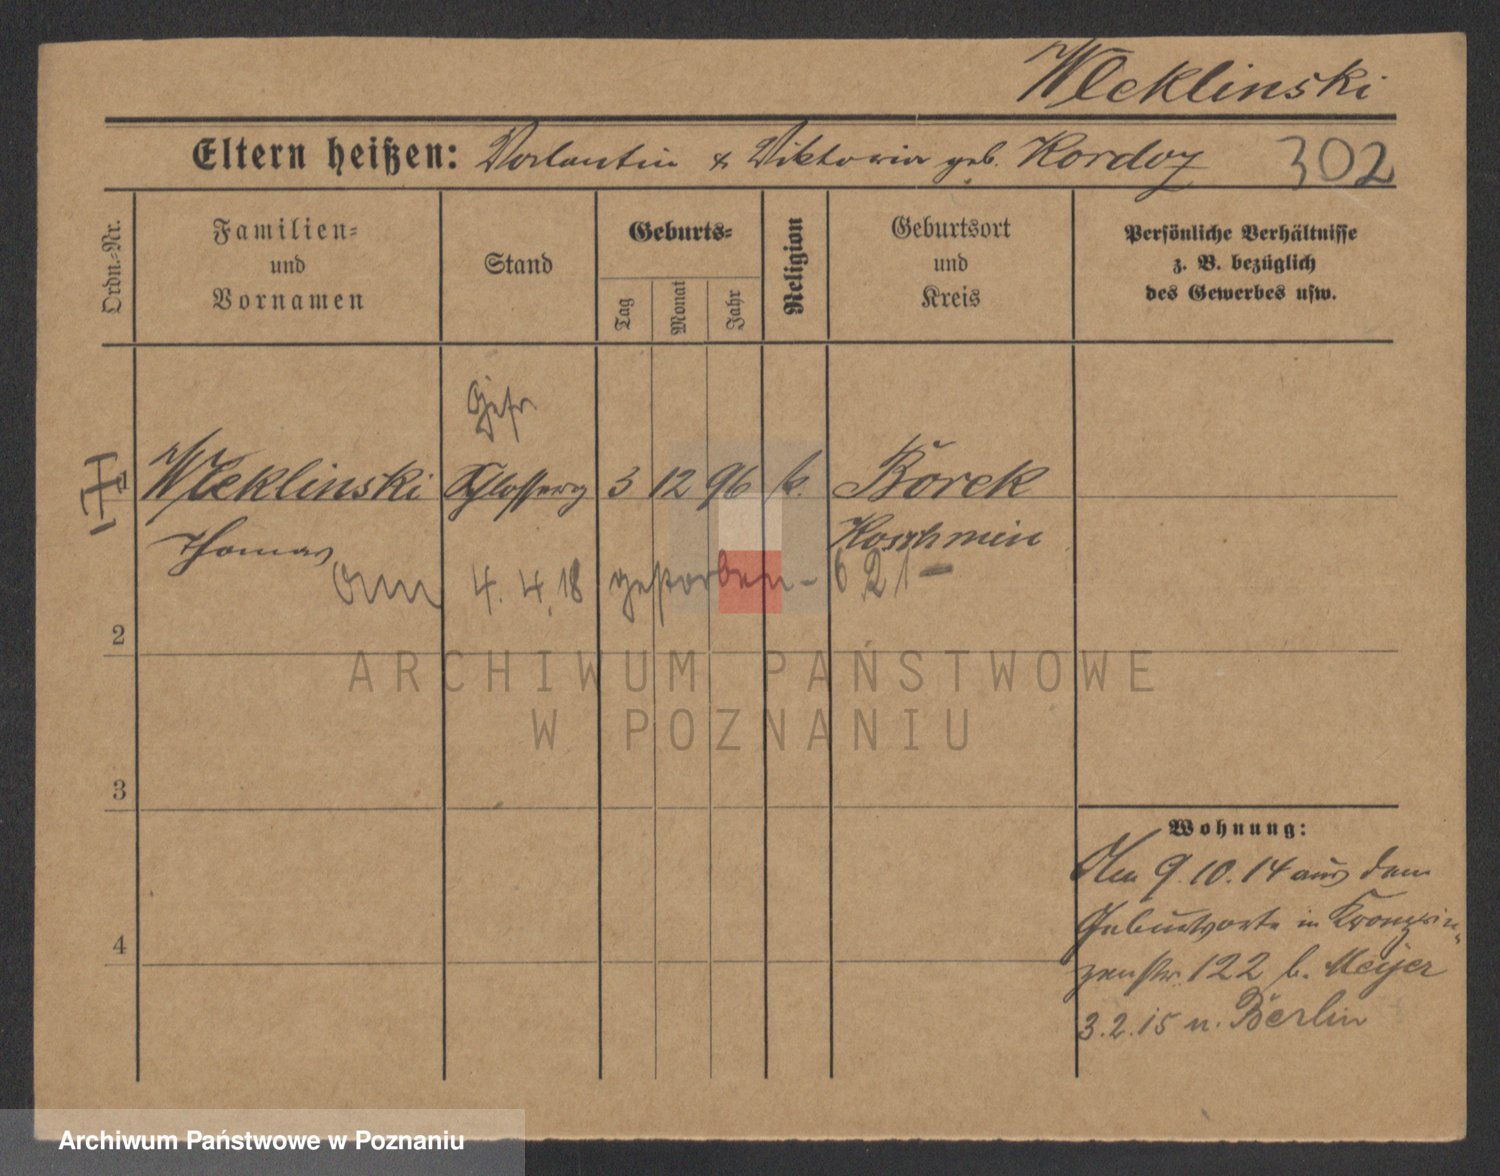 Wleklinski
Eltern heißen: Valentin & Viktoria geb. Kordoz 302
Ordn.=Nr.
Familien=
und
Vornamen
Stand
Geburts=
Tag
Monat
Jahr
Religion
Geburtsort
und
Kreis
Persönliche Verhältnisse
z. B. bezüglich
des Gewerbes usw.
Gefr
1 Wleklinski Schlosser 3 12 96 k. Borek
Thomas Koschmin
am 4. 4. 18 gestorben - 621 -
2
3
4
Wohnung:
Am 9.10.14 aus dem
Geburtsorte in Kronprin-
zenstr. 122 b. Meijer
3.2.15 n. Berlin
ARCHIWUM PAŃSTWOWE
W POZNANIU
Archiwum Państwowe w Poznaniu